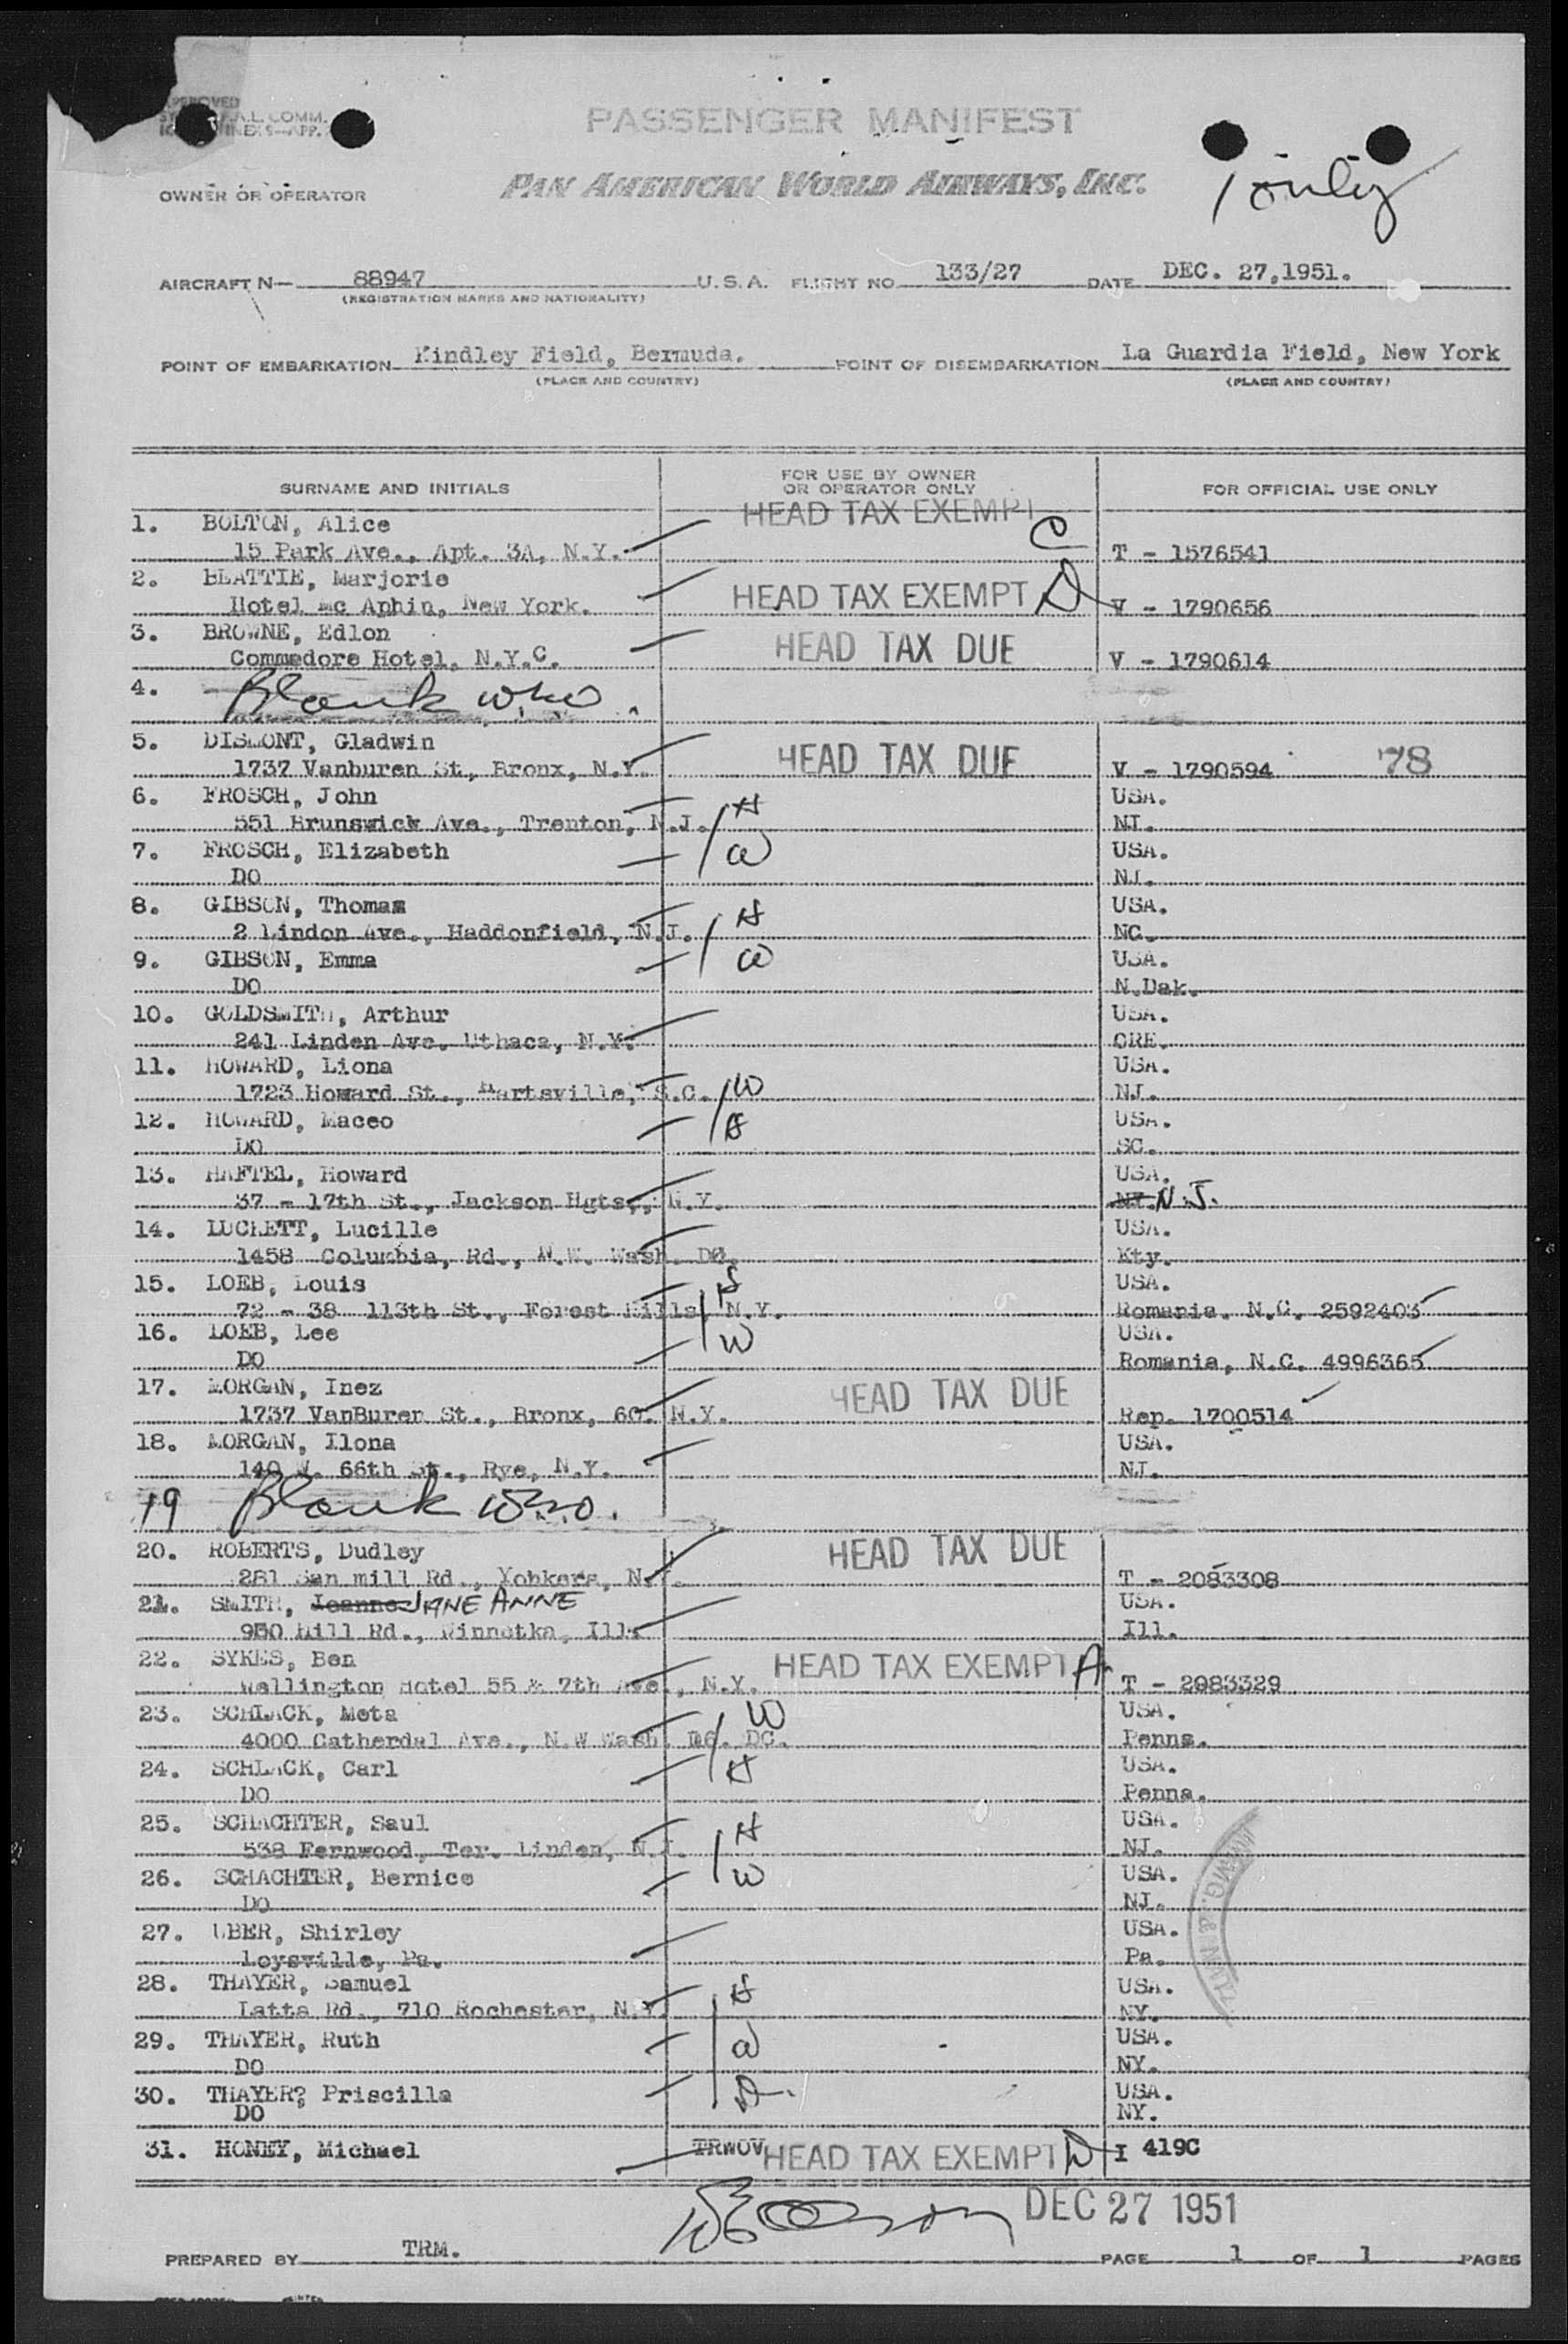 APPROVED
F.A.L. COMM.
PASSENGER MANIFEST
OWNER OR OPERATOR
PAN AMERICAN WORLD AIRWAYS, INC.
1 only
AIRCRAFT N— 88947 U.S.A. FLIGHT NO 133/27 DATE DEC. 27,1951.
(REGISTRATION MARKS AND NATIONALITY)
POINT OF EMBARKATION Kindley Field, Bermuda. POINT OF DISEMBARKATION La Guardia Field, New York
(PLACE AND COUNTRY) (PLACE AND COUNTRY)
SURNAME AND INITIALS FOR USE BY OWNER OR OPERATOR ONLY FOR OFFICIAL USE ONLY
1. BOLTON, Alice HEAD TAX EXEMPT C
15 Park Ave., Apt. 3A, N.Y. T - 1576541
2. BEATTIE, Marjorie HEAD TAX EXEMPT D
Hotel mc Aphin, New York. V - 1790656
3. BROWNE, Edlon HEAD TAX DUE
Commedore Hotel, N.Y.C. V - 1790614
4. Blank
5. DISMONT, Gladwin HEAD TAX DUE 78
1737 Vanburen St, Bronx, N.Y. V - 1790594
6. FROSCH, John H USA.
551 Brunswick Ave., Trenton, N.J. NJ.
7. FROSCH, Elizabeth W USA.
DO NJ.
8. GIBSON, Thomas H USA.
2 Lindon Ave., Haddonfield, N.J. NC.
9. GIBSON, Emma W USA.
DO N.Dak.
10. GOLDSMITH, Arthur USA.
241 Linden Ave. Uthaca, N.Y. ORE.
11. HOWARD, Liona W USA.
1723 Howard St., Hartsville, S.C. NJ.
12. HOWARD, Maceo H USA.
DO SC.
13. HAFTEL, Howard USA.
37 - 17th St., Jackson Hgts., N.Y. N.J.
14. LUCKETT, Lucille USA.
1458 Columbia, Rd., N.W. Wash. DC. Kty.
15. LOEB, Louis USA.
72 - 38 113th St., Forest Hills, N.Y. Romania. N.C. 2592403
16. LOEB, Lee W USA.
DO Romania, N.C. 4996365
17. MORGAN, Inez HEAD TAX DUE
1737 VanBuren St., Bronx, 60. N.Y. Rep. 1700514
18. MORGAN, Ilona USA.
140 W. 66th St., Rye, N.Y. NJ.
19 Blank
20. ROBERTS, Dudley HEAD TAX DUE
281 San mill Rd., Yohkers, N.Y. T - 2083308
21. SMITH, Jeanne JANE ANNE USA.
950 Hill Rd., Winnetka, Ill. Ill.
22. SYKES, Ben HEAD TAX EXEMPT A
Wellington Hotel 55 & 7th Ave., N.Y. T - 2083329
23. SCHLACK, Meta W USA.
4000 Catherdal Ave., N.W Wash. DC. DC. Penna.
24. SCHLACK, Carl H USA.
DO Penna.
25. SCHACHTER, Saul H USA.
538 Fernwood, Ter. Linden, N.J. NJ.
26. SCHACHTER, Bernice W USA.
DO NJ.
27. UBER, Shirley USA.
Loysville, Pa. Pa.
28. THAYER, Samuel H USA.
Latta Rd., 710 Rochester, N.Y. NY.
29. THAYER, Ruth W USA.
DO NY.
30. THAYER? Priscilla D. USA.
DO NY.
31. HONEY, Michael TRWOV HEAD TAX EXEMPT D I 419C
DEC 27 1951
PREPARED BY TRM. PAGE 1 OF 1 PAGES